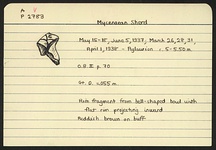 A V
P 2783
Mycenaean Sherd
May 15-18, June 5, 1937; March 26, 28, 31,
April 1, 1938 - Pylwaion c. 5-5.50 m
O.B. II p. 70
Gr. D. c.055 m.
Base fragment from bell-shaped bowl with
flat rim projecting inward
Reddish brown on buff